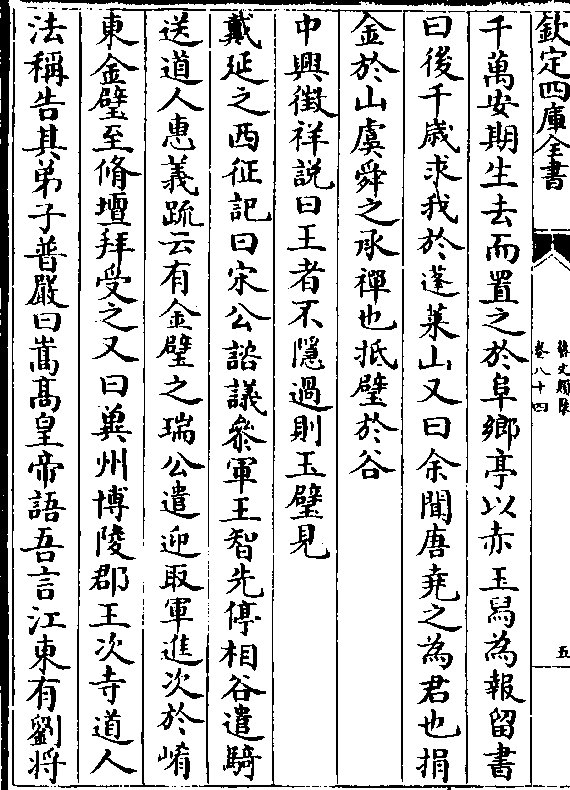 欽定四庫全書
藝文類聚
卷八十四
五
千萬安期生去而置之於阜鄉亭以赤玉舄為報留書
曰後千歲求我於蓬萊山又曰余聞唐堯之為君也捐
金於山虞舜之承禪也抵璧於谷
中興徵祥説曰王者不隱過則玉璧見
戴延之西征記曰宋公諮議參軍王智先停相谷遣騎
送道人惠義䟽云有金璧之瑞公遣迎取軍進次於崤
東金璧至脩壇拜受之又曰兾州博陵郡王次寺道人
法稱告其弟子普嚴曰嵩髙皇帝語吾言江東有劉将